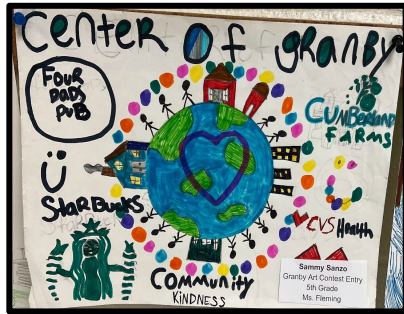 Center Of granby
FOUR
DADS
PUB
CUMBERLAND
FARMS
StarBucks
CVS Health
COMMUNITY
KINDNESS
Sammy Sanzo
Granby Art Contest Entry
5th Grade
Ms. Fleming